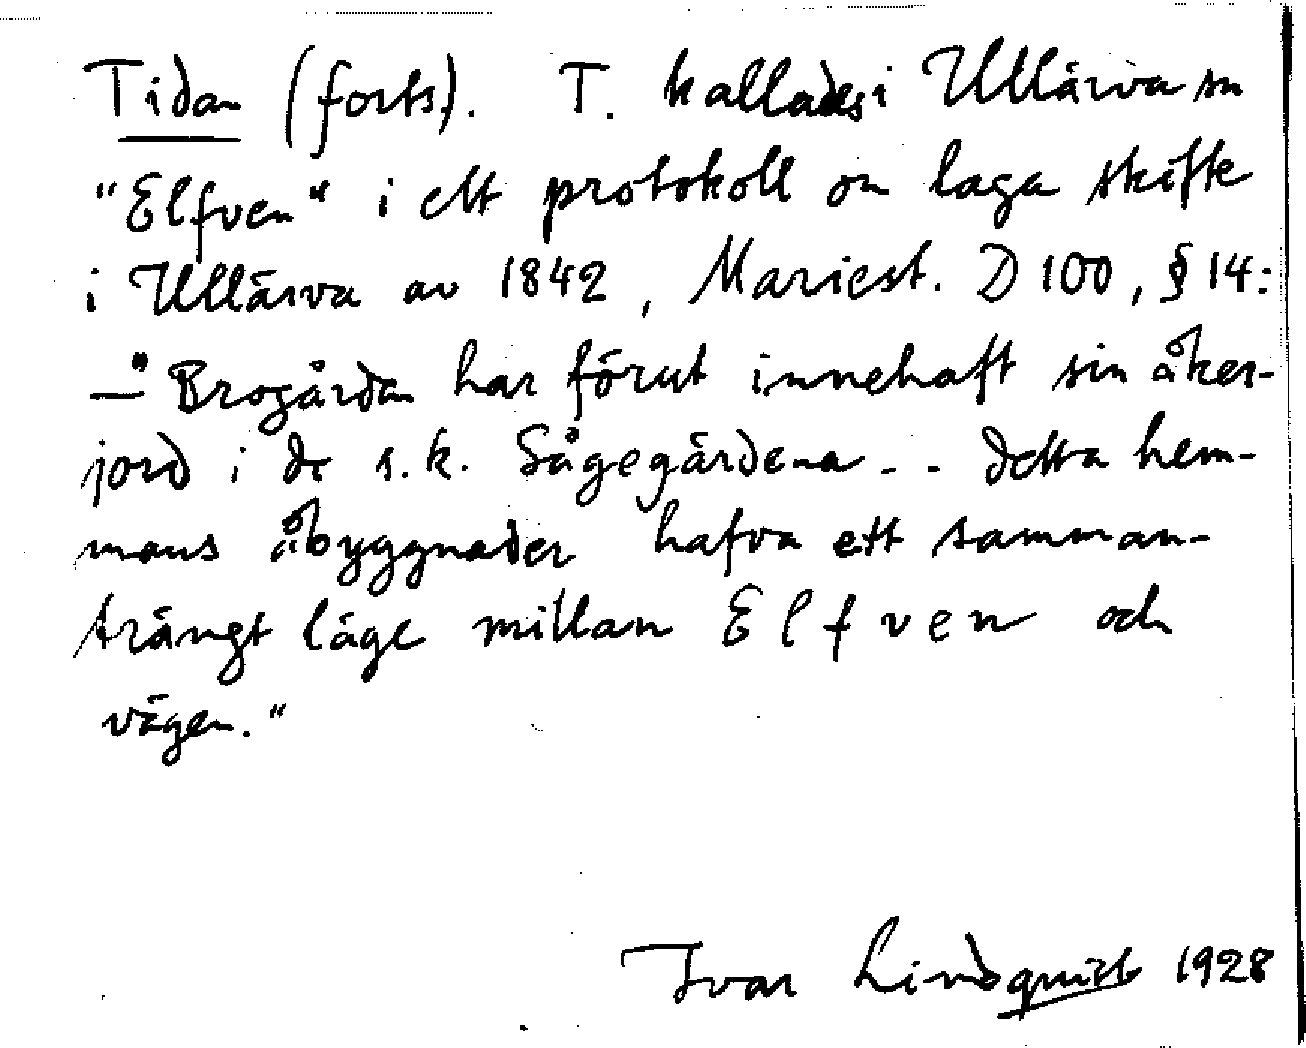 Tidan (forts). T. kallades i Ullärva sn
"Elfven" i ett protokoll om laga skifte
i Ullärva av 1842, Mariest. D 100, § 14:
—" Brogården har förut innehaft sin åker-
jord i de s.k. Sågegärdena - - detta hem-
mans åbyggnader hafva ett samman-
trängt läge mellan Elfven och
vägen."
Ivar Lindquist 1928